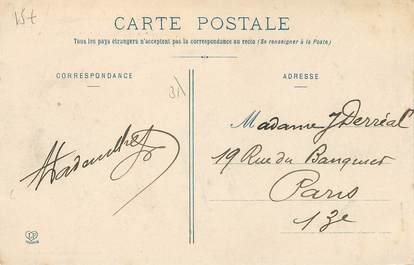 15t
CARTE POSTALE
Tous les pays étrangers n'acceptent pas la correspondance au recto (Se renseigner à la Poste)
CORRESPONDANCE
ADRESSE
Madame J Derréal
19 Rue du Banquier
Paris
13e